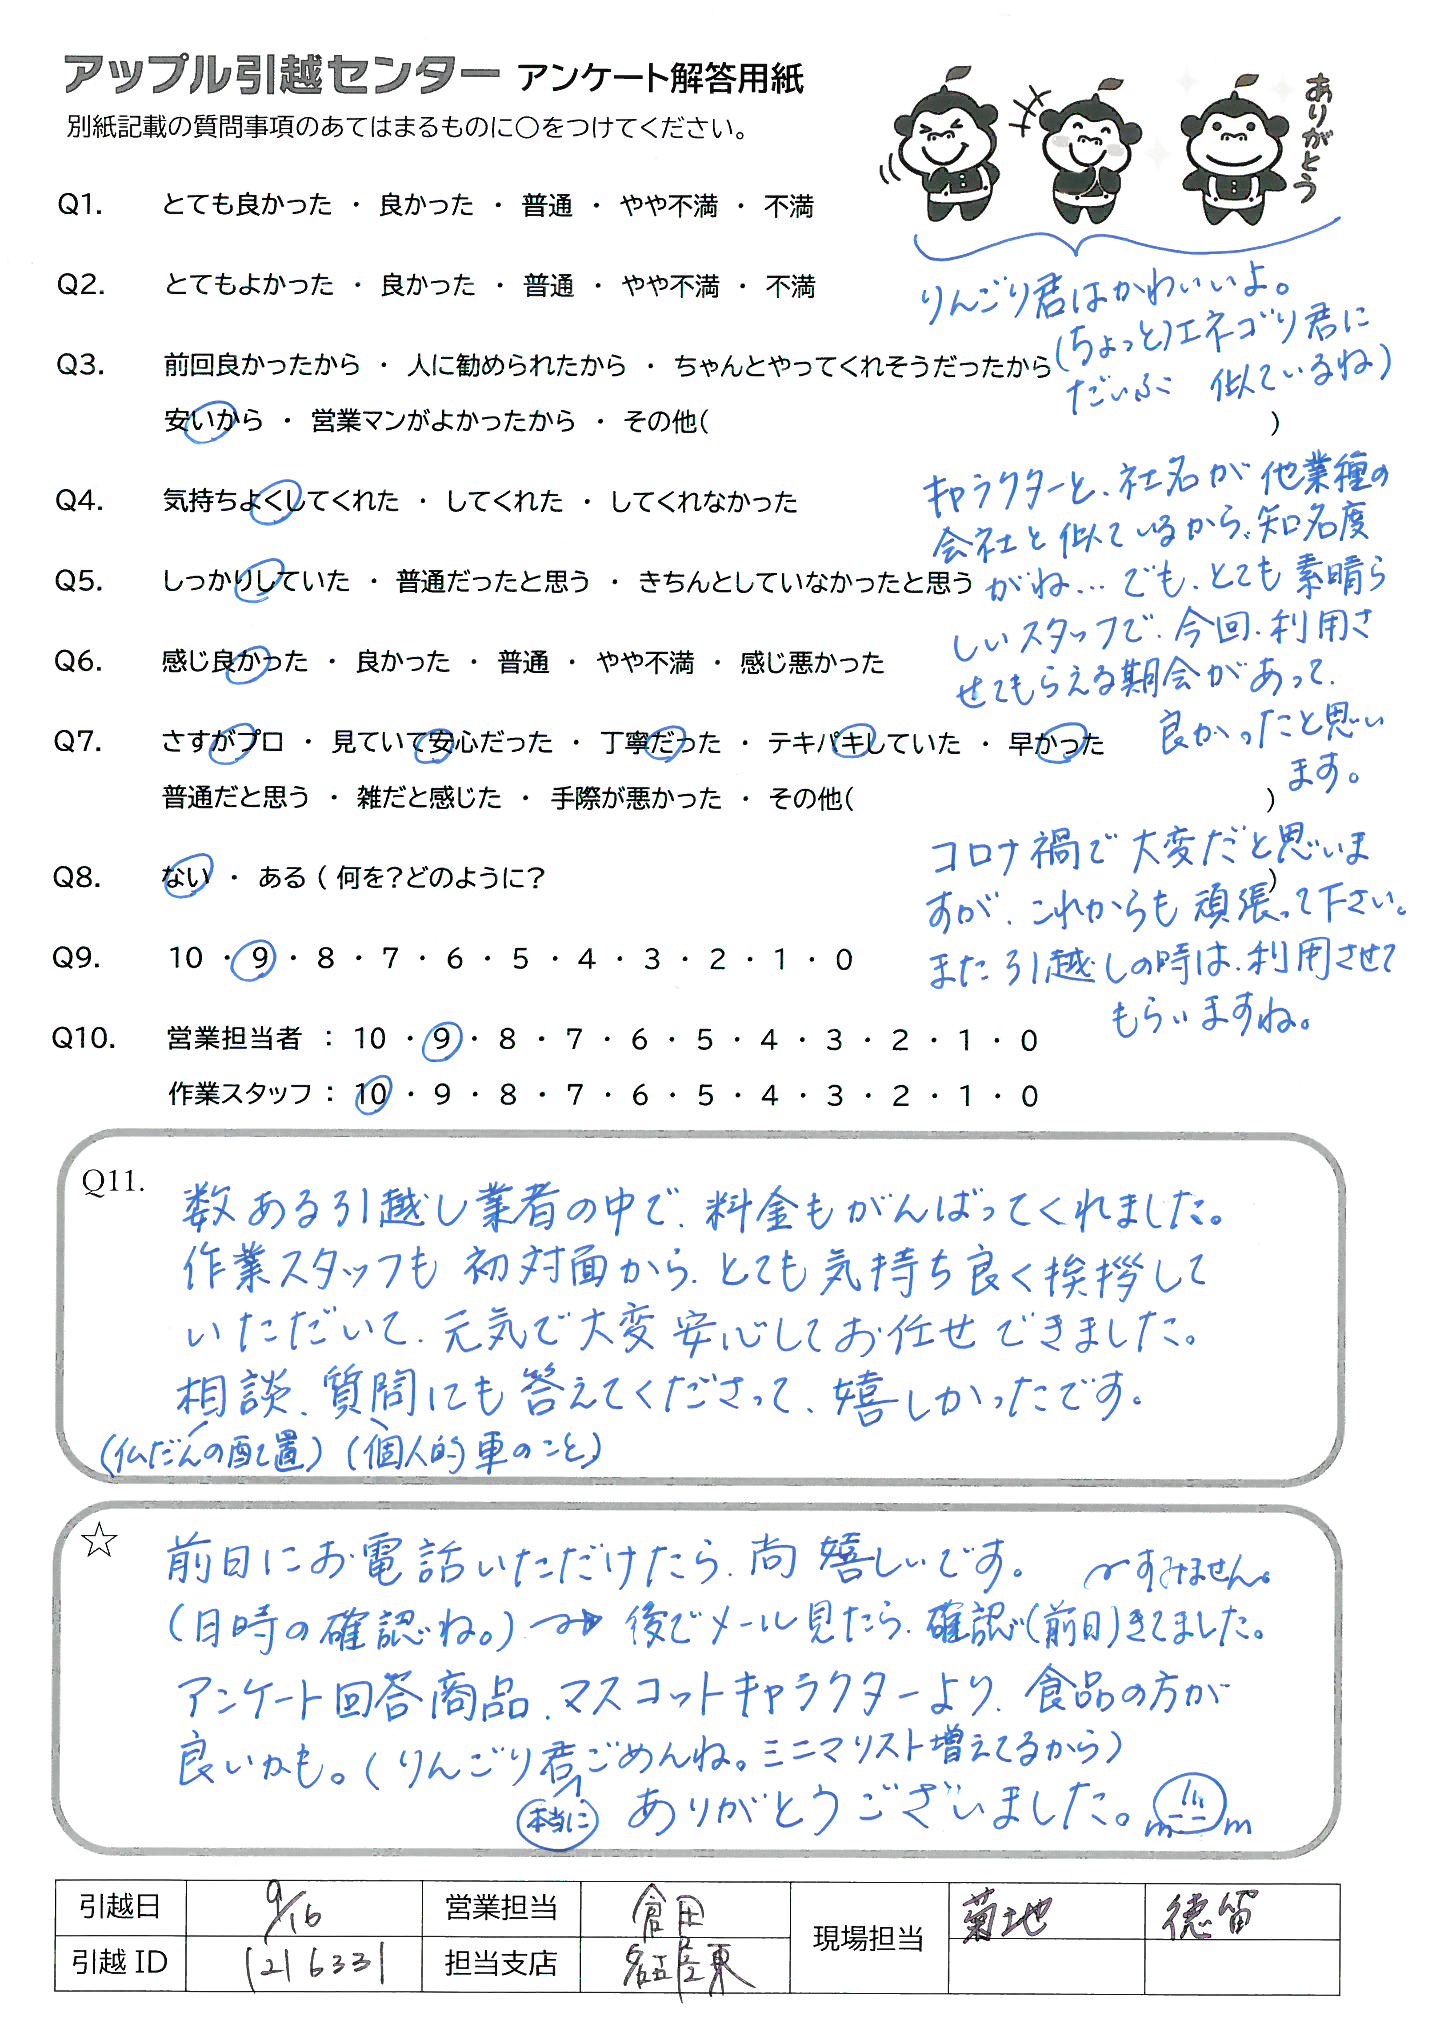 アップル引越センター アンケート解答用紙
別紙記載の質問事項のあてはまるものに〇をつけてください。
ありがとう
Q1. とても良かった ・ 良かった ・ 普通 ・ やや不満 ・ 不満
Q2. とてもよかった ・ 良かった ・ 普通 ・ やや不満 ・ 不満
りんごり君はかわいいよ。
(ちょっと)エネゴリ君に
だいぶ 似ているね)
Q3. 前回良かったから ・ 人に勧められたから ・ ちゃんとやってくれそうだったから
安いから ・ 営業マンがよかったから ・ その他( )
Q4. 気持ちよくしてくれた ・ してくれた ・ してくれなかった
Q5. しっかりしていた ・ 普通だったと思う ・ きちんとしていなかったと思う
Q6. 感じ良かった ・ 良かった ・ 普通 ・ やや不満 ・ 感じ悪かった
Q7. さすがプロ ・ 見ていて安心だった ・ 丁寧だった ・ テキパキしていた ・ 早かった
普通だと思う ・ 雑だと感じた ・ 手際が悪かった ・ その他( )
キャラクターと、社名が他業種の
会社と似ているから、知名度
がね… でも、とても素晴ら
しいスタッフで、今回、利用さ
せてもらえる期会があって、
良かったと思い
ます。
Q8. ない ・ ある ( 何を?どのように? )
Q9. 10 ・ 9 ・ 8 ・ 7 ・ 6 ・ 5 ・ 4 ・ 3 ・ 2 ・ 1 ・ 0
Q10. 営業担当者 : 10 ・ 9 ・ 8 ・ 7 ・ 6 ・ 5 ・ 4 ・ 3 ・ 2 ・ 1 ・ 0
作業スタッフ : 10 ・ 9 ・ 8 ・ 7 ・ 6 ・ 5 ・ 4 ・ 3 ・ 2 ・ 1 ・ 0
コロナ禍で大変だと思いま
すが、これからも頑張って下さい。
また引越しの時は、利用させて
もらいますね。
Q11. 数ある引越し業者の中で、料金もがんばってくれました。
作業スタッフも初対面から、とても気持ち良く挨拶して
いただいて、元気で大変安心してお任せできました。
相談、質問にも答えてくださって、嬉しかったです。
(仏だんの配置) (個人的車のこと)
☆ 前日にお電話いただけたら、尚嬉しいです。 〜すみません。
(日時の確認ね。) → 後でメール見たら、確認(前日)きてました。
アンケート回答商品、マスコットキャラクターより、食品の方が
良いかも。(りんごり君ごめんね。ミニマリスト増えてるから)
本当に ありがとうございました。m m
引越日 9/16 営業担当 倉田 現場担当 菊地 徳留
引越 ID 1216331 担当支店 名古屋東